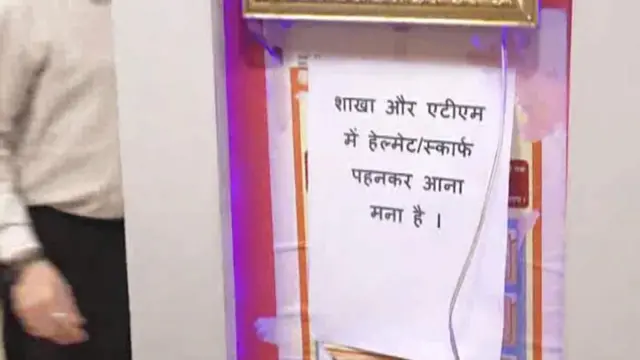 शाखा और एटीएम
में हेल्मेट/स्कार्फ
पहनकर आना
मना है ।